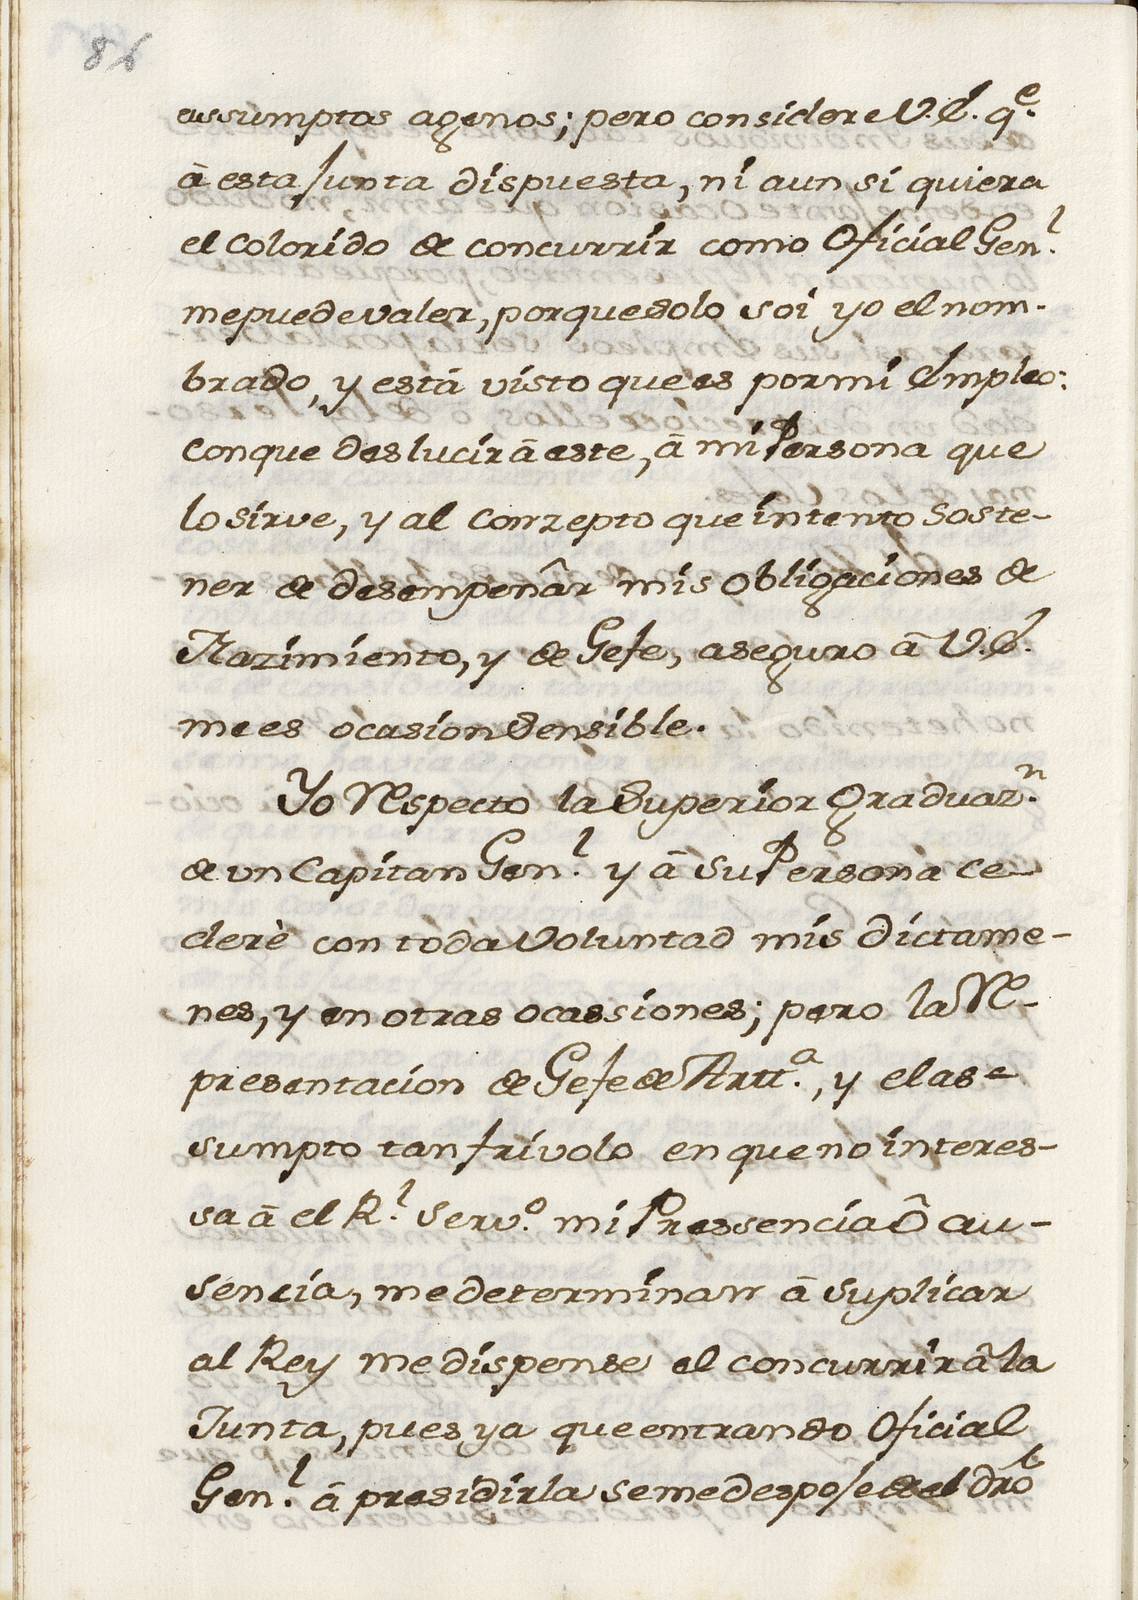 86
assumptos agenos; pero considere V.E. qᵉ.
à esta Junta dispuesta, ni aun si quiera
el colorido de concurrir como Oficial Genˡ.
me puede valer, porque solo soi yo el nom-
brado, y està visto que es por mi Empleo:
conque deslucir à este, à mi Persona que
lo sirve, y al conzepto que intento Soste-
ner de desempeñar mis obligaciones de
Nazimiento, y de Gefe, aseguro à V.E.
me es ocasion Sensible.
Yo Respecto la Superior Graduazⁿ.
de un Capitan Genˡ. y à su Persona ce-
derè con toda Voluntad mis dictame-
nes, y en otras ocassiones; pero la Re-
presentacion de Gefe de Arttᵃ., y el as-
sumpto tan frivolo en que no interes-
sa à el Rˡ. Servᵒ. mi Pressencia ô au-
sencia, me determinan à suplicar
al Rey me dispense el concurrir à la
Junta, pues ya que entrando Oficial
Genˡ. à presidirla se me desposee del dro